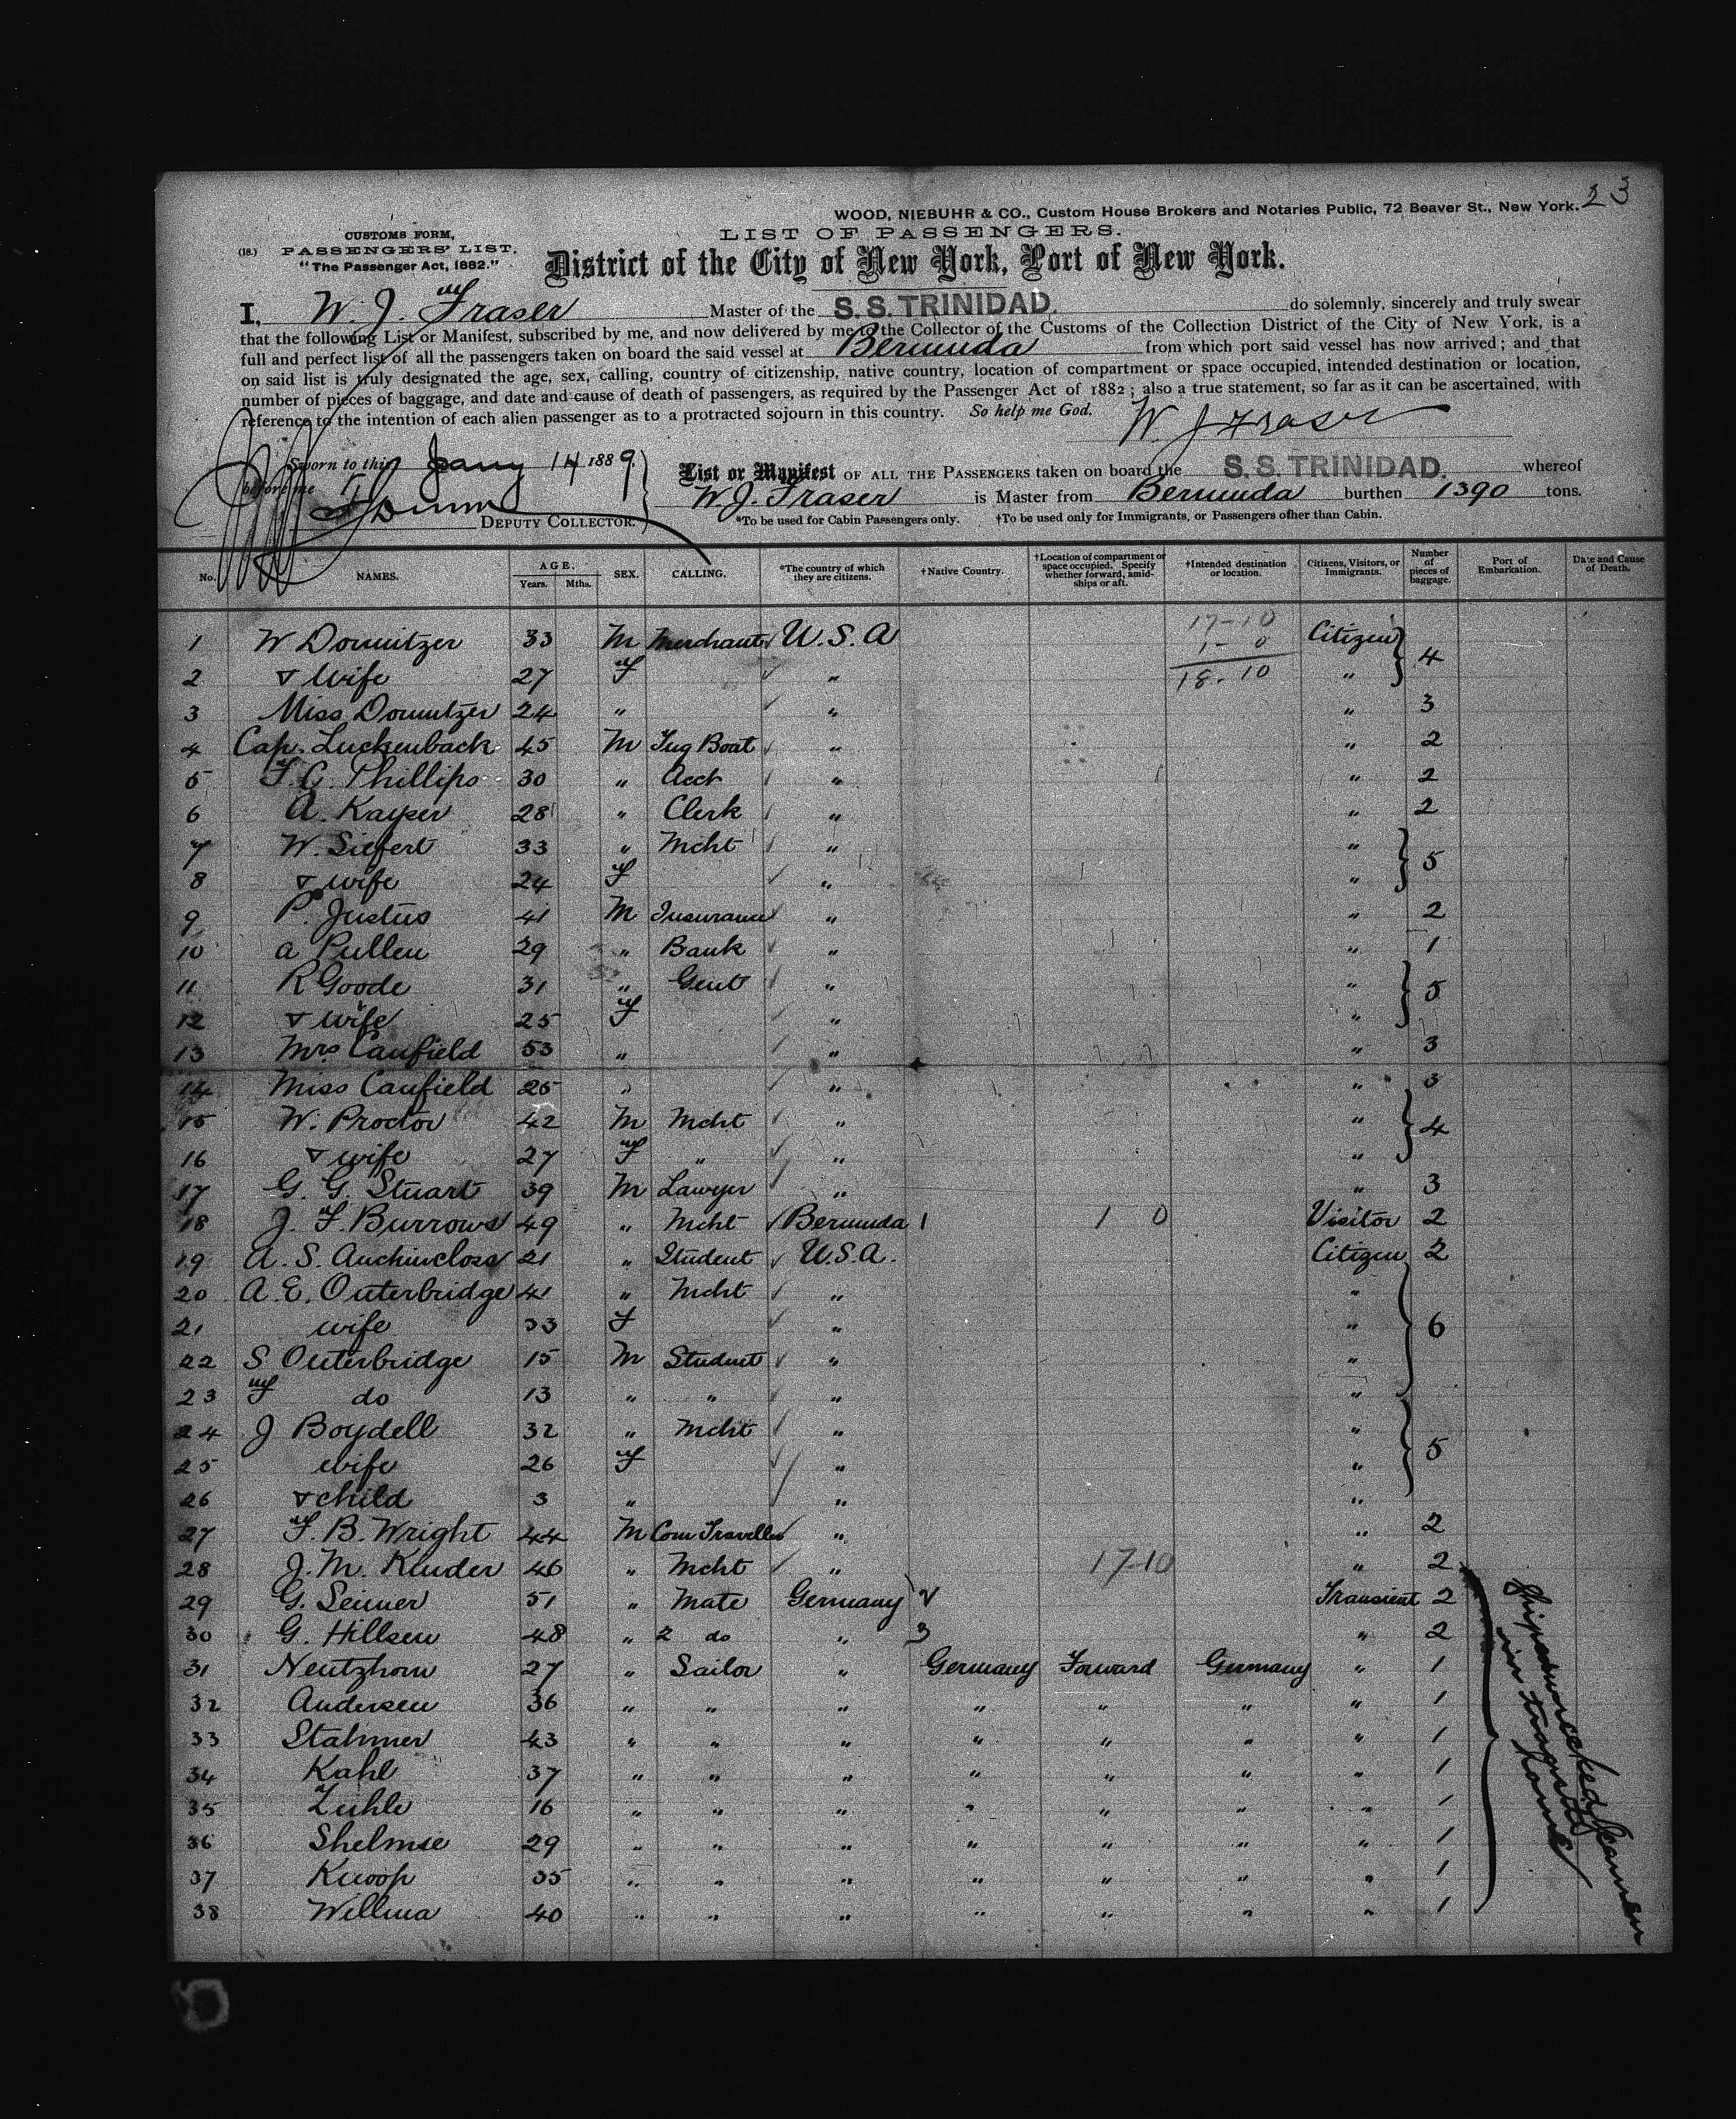 23
WOOD, NIEBUHR & CO., Custom House Brokers and Notaries Public, 72 Beaver St., New York.
(18.) CUSTOMS FORM, PASSENGERS' LIST. "The Passenger Act, 1882."
LIST OF PASSENGERS.
District of the City of New York, Port of New York.
I, W. J. Fraser Master of the S. S. TRINIDAD. do solemnly, sincerely and truly swear
that the following List or Manifest, subscribed by me, and now delivered by me to the Collector of the Customs of the Collection District of the City of New York, is a
full and perfect list of all the passengers taken on board the said vessel at Bermuda from which port said vessel has now arrived; and that
on said list is truly designated the age, sex, calling, country of citizenship, native country, location of compartment or space occupied, intended destination or location,
number of pieces of baggage, and date and cause of death of passengers, as required by the Passenger Act of 1882; also a true statement, so far as it can be ascertained, with
reference to the intention of each alien passenger as to a protracted sojourn in this country. So help me God.
W. J Fraser
Sworn to this Jany 14 1889
before me
Dunn
DEPUTY COLLECTOR.
List or Manifest OF ALL THE PASSENGERS taken on board the S. S. TRINIDAD. whereof
W. J. Fraser is Master from Bermuda burthen 1390 tons.
*To be used for Cabin Passengers only. †To be used only for Immigrants, or Passengers other than Cabin.
No. NAMES. AGE. Years. Mths. SEX. CALLING. *The country of which they are citizens. †Native Country. †Location of compartment or space occupied. Specify whether forward, amidships or aft. †Intended destination or location. Citizens, Visitors, or Immigrants. Number of pieces of baggage. Port of Embarkation. Date and Cause of Death.
17-10
1- 0
18-10
1 W Domitzer 33 M Merchant U.S.A Citizen 4
2 & Wife 27 F " "
3 Miss Domitzer 24 " " " 3
4 Cap. Luckenback 45 M Tug Boat " " 2
5 F. C. Phillips 30 " Acct " " 2
6 A. Kayser 28 " Clerk " " 2
7 W. Siefert 33 " Mcht " " 5
8 & wife 24 F " "
9 P. Justus 41 M Insurance " " 2
10 A Pullen 29 " Bank " " 1
11 R Goode 31 " Gent " " 5
12 & wife 25 F " "
13 Mrs Caufield 53 " " " 3
14 Miss Caufield 25 " " " 3
15 W. Proctor 42 M Mcht " " 4
16 & wife 27 F " " "
17 G. G. Stuart 39 M Lawyer " " 3
18 J. F. Burrows 49 " Mcht Bermuda 1 1 0 Visitor 2
19 A. S. Auchincloss 21 " Student U.S.A. Citizen 2
20 A. E. Outerbridge 41 " Mcht " " 6
21 wife 33 F " "
22 S Outerbridge 15 M Student " "
23 F do 13 " " " "
24 J Boydell 32 " Mcht " " 5
25 wife 26 F " "
26 & child 3 " " "
27 F. B. Wright 44 M Com Traveller " " 2
28 J. M. Kinder 46 " Mcht " 17-10 " 2
29 G. Leimer 51 " Mate Germany 2 Transient 2
30 G. Hillsen 48 " 2 do " 3 " 2
31 Neutzhorn 27 " Sailor " Germany Forward Germany " 1
32 Andersen 36 " " " " " " " 1
33 Stahmer 43 " " " " " " " 1
34 Kahl 37 " " " " " " " 1
35 Zuhle 16 " " " " " " " 1
36 Shelmie 29 " " " " " " " 1
37 Knoop 35 " " " " " " " 1
38 Willma 40 " " " " " " " 1
Shipwrecked Seamen
in transit
home